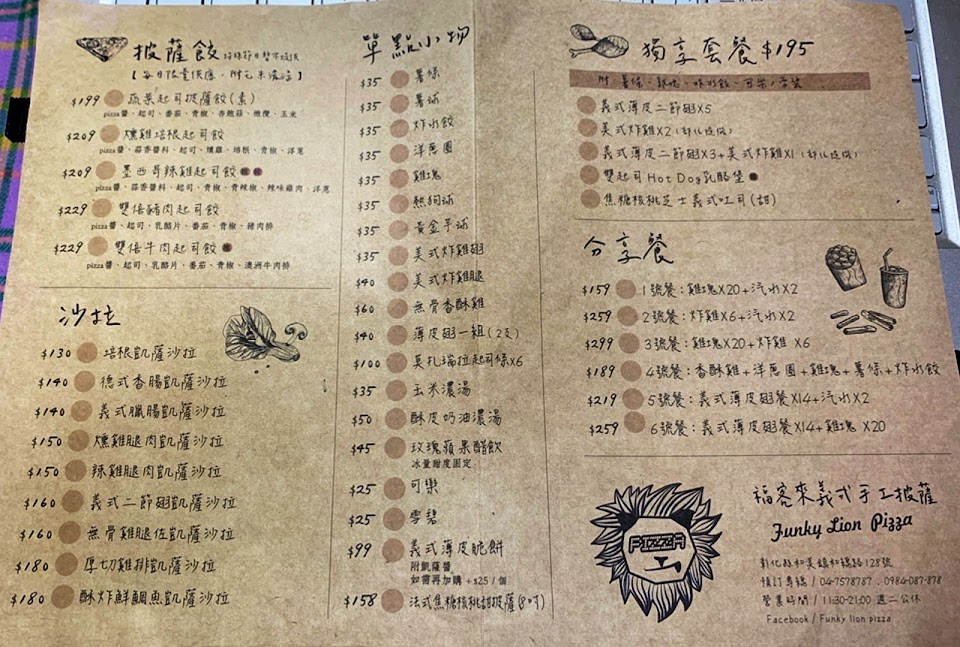 披薩餃
【每日限量供應,附玉米濃湯】
$199 蔬菜起司披薩餃(素)
pizza醬、起司、番茄、青椒、杏鮑菇、橄欖、玉米
$209 燻雞培根起司餃
pizza醬、蒜香醬料、起司、燻雞、培根、青椒、洋蔥
$209 墨西哥辣雞起司餃
pizza醬、蒜香醬料、起司、青椒、青辣椒、辣味雞肉、洋蔥
$229 雙倍豬肉起司餃
pizza醬、起司、乳酪片、番茄、青椒、豬肉排
$229 雙倍牛肉起司餃
pizza醬、起司、乳酪片、番茄、青椒、澳洲牛肉排
沙拉
$130 培根凱薩沙拉
$140 德式香腸凱薩沙拉
$140 義式臘腸凱薩沙拉
$150 燻雞腿肉凱薩沙拉
$150 辣雞腿肉凱薩沙拉
$160 義式二節翅凱薩沙拉
$160 無骨雞腿佐凱薩沙拉
$180 厚切雞排凱薩沙拉
$180 酥炸鮮鯛魚凱薩沙拉
單點小物
$35 薯條
$35 薯球
$35 炸水餃
$35 洋蔥圈
$35 雞塊
$35 熱狗球
$35 黃金芋球
$35 美式炸雞翅
$40 美式炸雞腿
$60 無骨香酥雞
$40 薄皮翅一組(2支)
$100 莫扎瑞拉起司條X6
$35 玉米濃湯
$50 酥皮奶油濃湯
$45 玫瑰蘋果醋飲
冰量甜度固定
$25 可樂
$25 雪碧
$99 義式薄皮脆餅
附凱薩醬
如需再加購 +$25 / 個
$158 法式焦糖核桃甜披薩(8吋)
獨享套餐$195
義式薄皮二節翅X5
美式炸雞X2(部位隨機)
義式薄皮二節翅X3+美式炸雞X1(部位隨機)
雙起司Hot Dog乳酪堡
焦糖核桃芝士義式吐司(甜)
分享餐
$159 1號餐:雞塊X20+汽水X2
$259 2號餐:炸雞X6+汽水X2
$299 3號餐:雞塊X20+炸雞 X6
$189 4號餐:香酥雞+洋蔥圈+雞塊+薯條+炸水餃
$219 5號餐:義式薄皮翅餐X14+汽水X2
$259 6號餐:義式薄皮翅餐X14+雞塊 X20
PIZZA
福客來義式手工披薩
Funky Lion Pizza
彰化縣和美鎮和樂路128號
預訂專線 / 04-7578787 . 0984-087-878
營業時間 / 11:30-21:00 週二公休
Facebook / Funky lion pizza